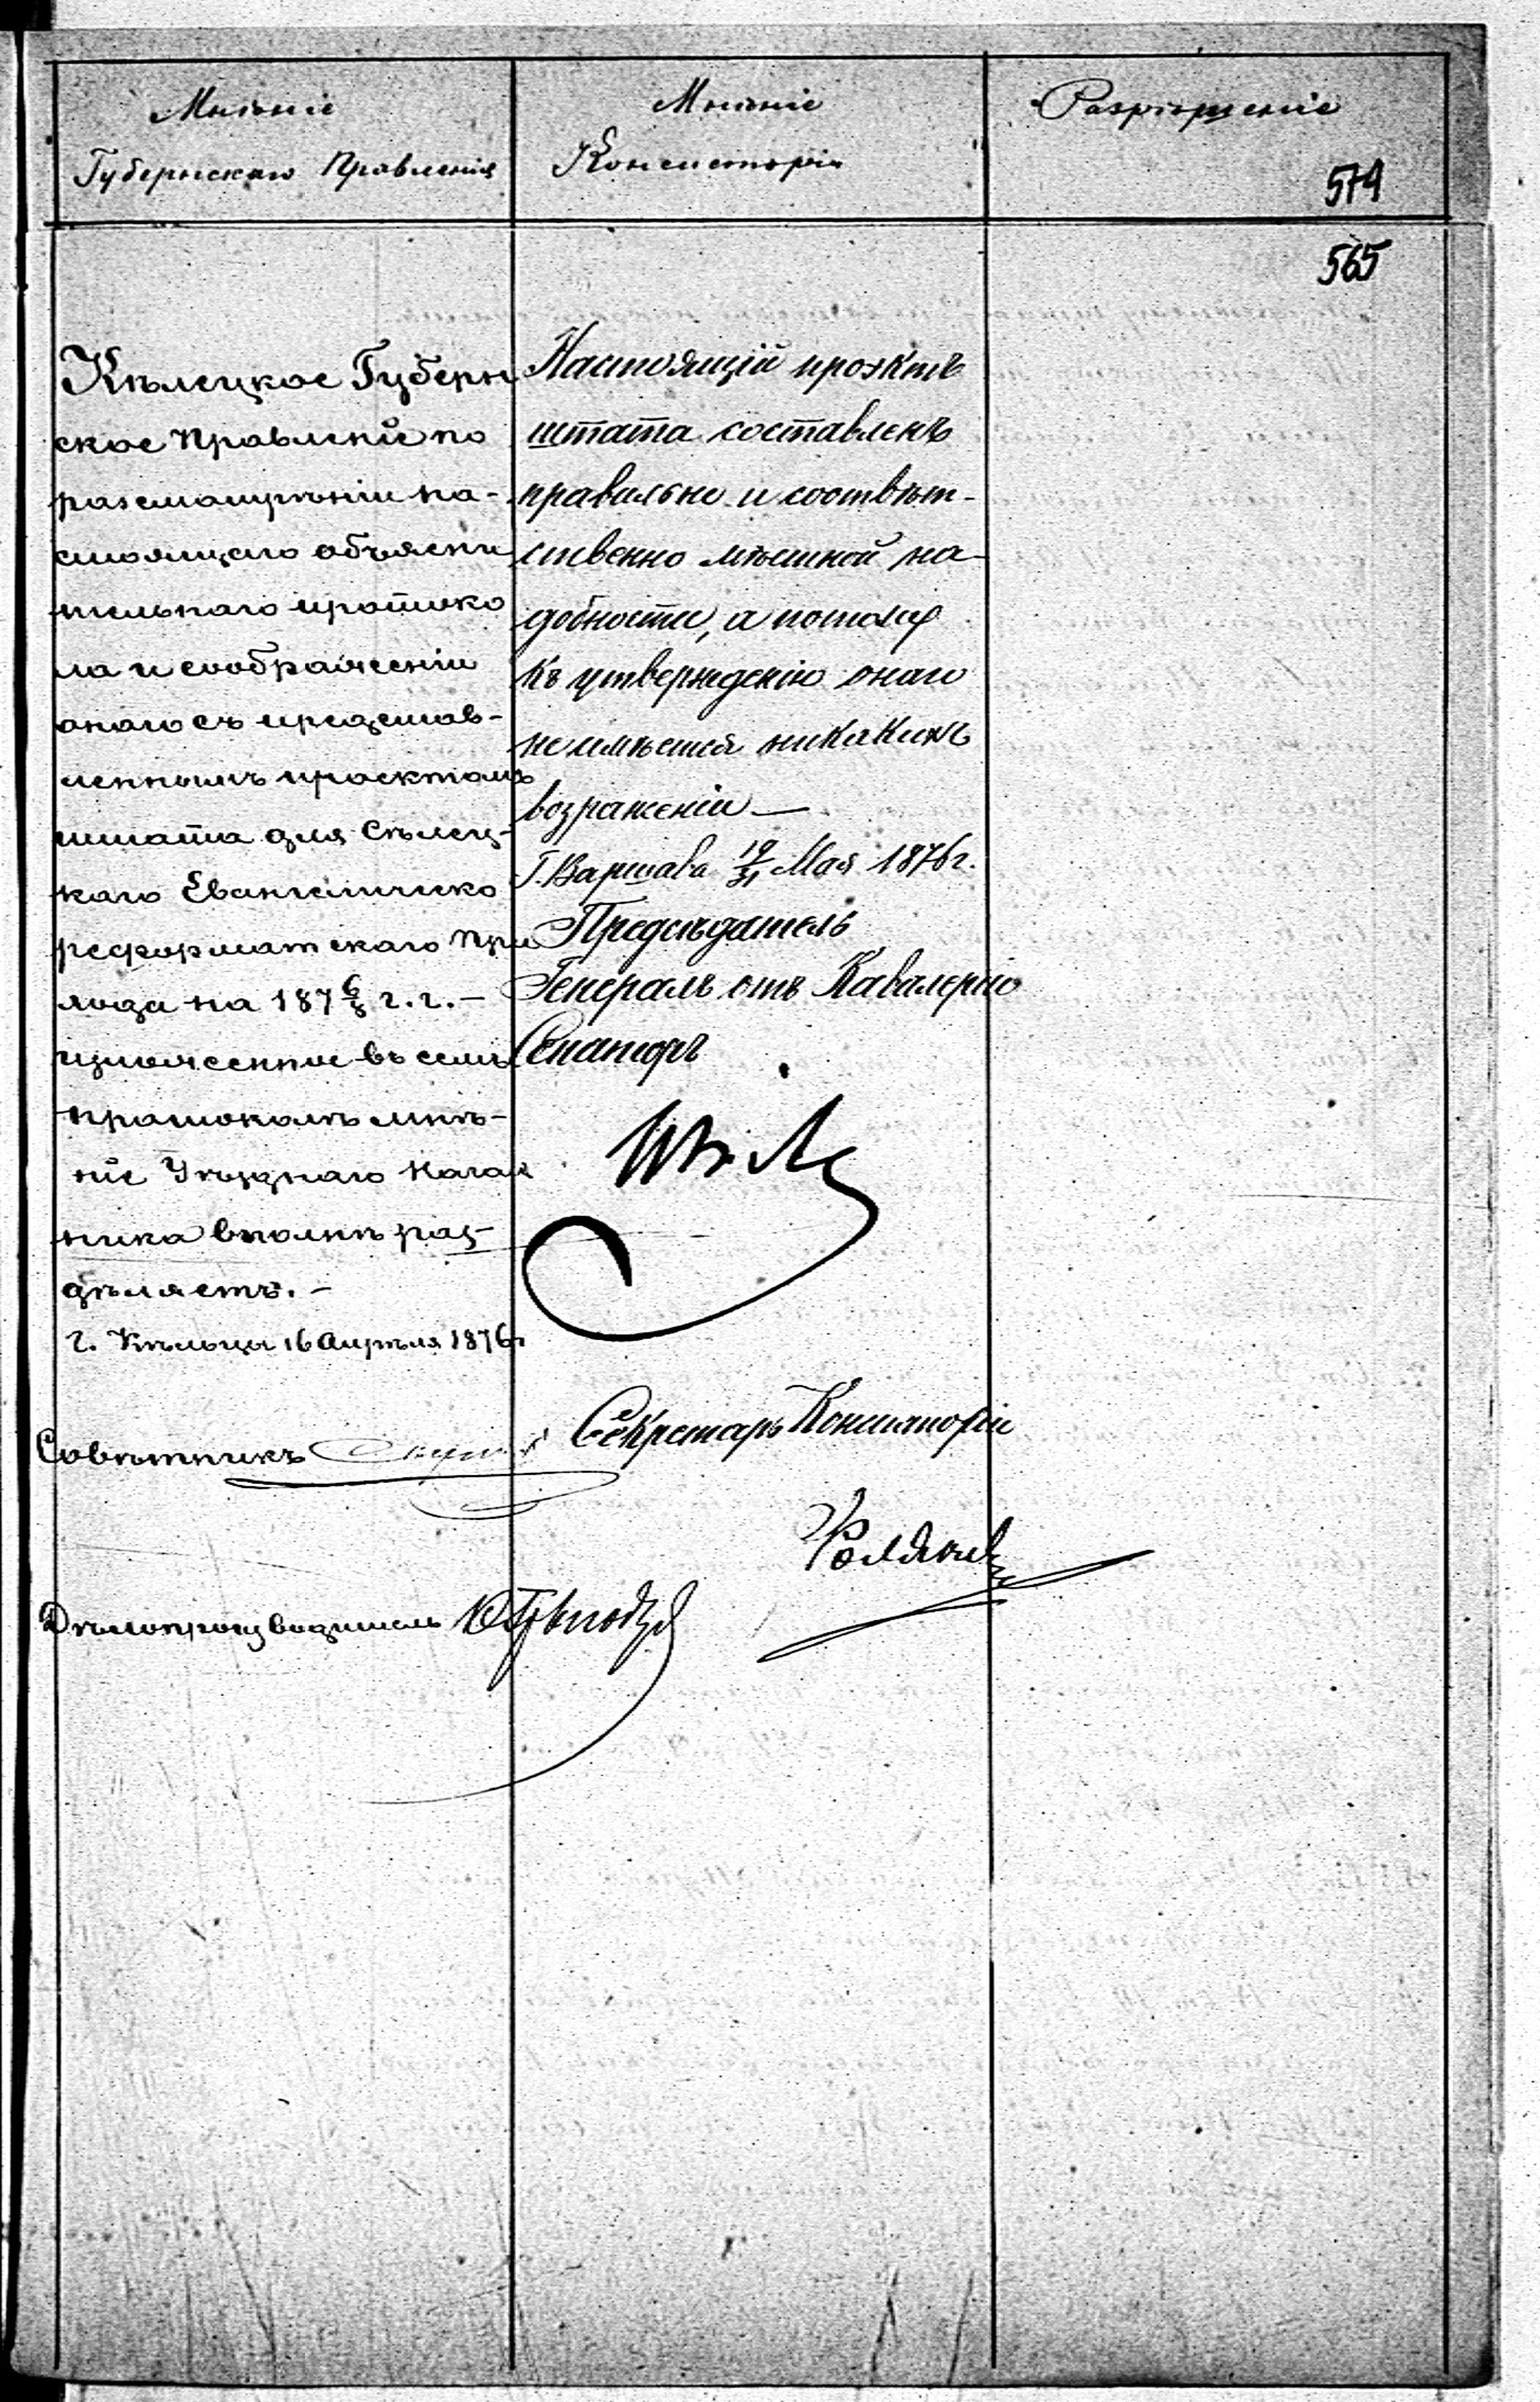 Мнѣніе
Губернскаго Правленія
Мнѣніе
Консисторіи
Разрѣшеніе
574
565
Кѣлецкое Губерн
ское Правленіе по
разсмотрѣніи на-
стоящаго объясни
тельнаго протоко
ла и соображеніи
онаго съ представ-
леннымъ проектомъ
штата для Сѣлец-
каго Евангелическо
реформатскаго При
хода на 187 6/8 г.г. –
изложенное въ семъ
протоколѣ мнѣ-
ніе Уѣзднаго Начал
ника вполнѣ раз-
дѣляетъ. –
г. Кѣльцы 16 Апрѣля 1876 г
Совѣтникъ
Дѣлопроизводитель
Настоящій проэктъ
штата составленъ
правильно и соотвѣт-
ственно мѣстной на-
добности, а потому
къ утвержденію онаго
не имѣется никакихъ
возраженій –
Г. Варшава 19/31 Мая 1876 г.
Предсѣдатель
Генералъ отъ Кавалеріи
Сенаторъ
Секретарь Консисторіи